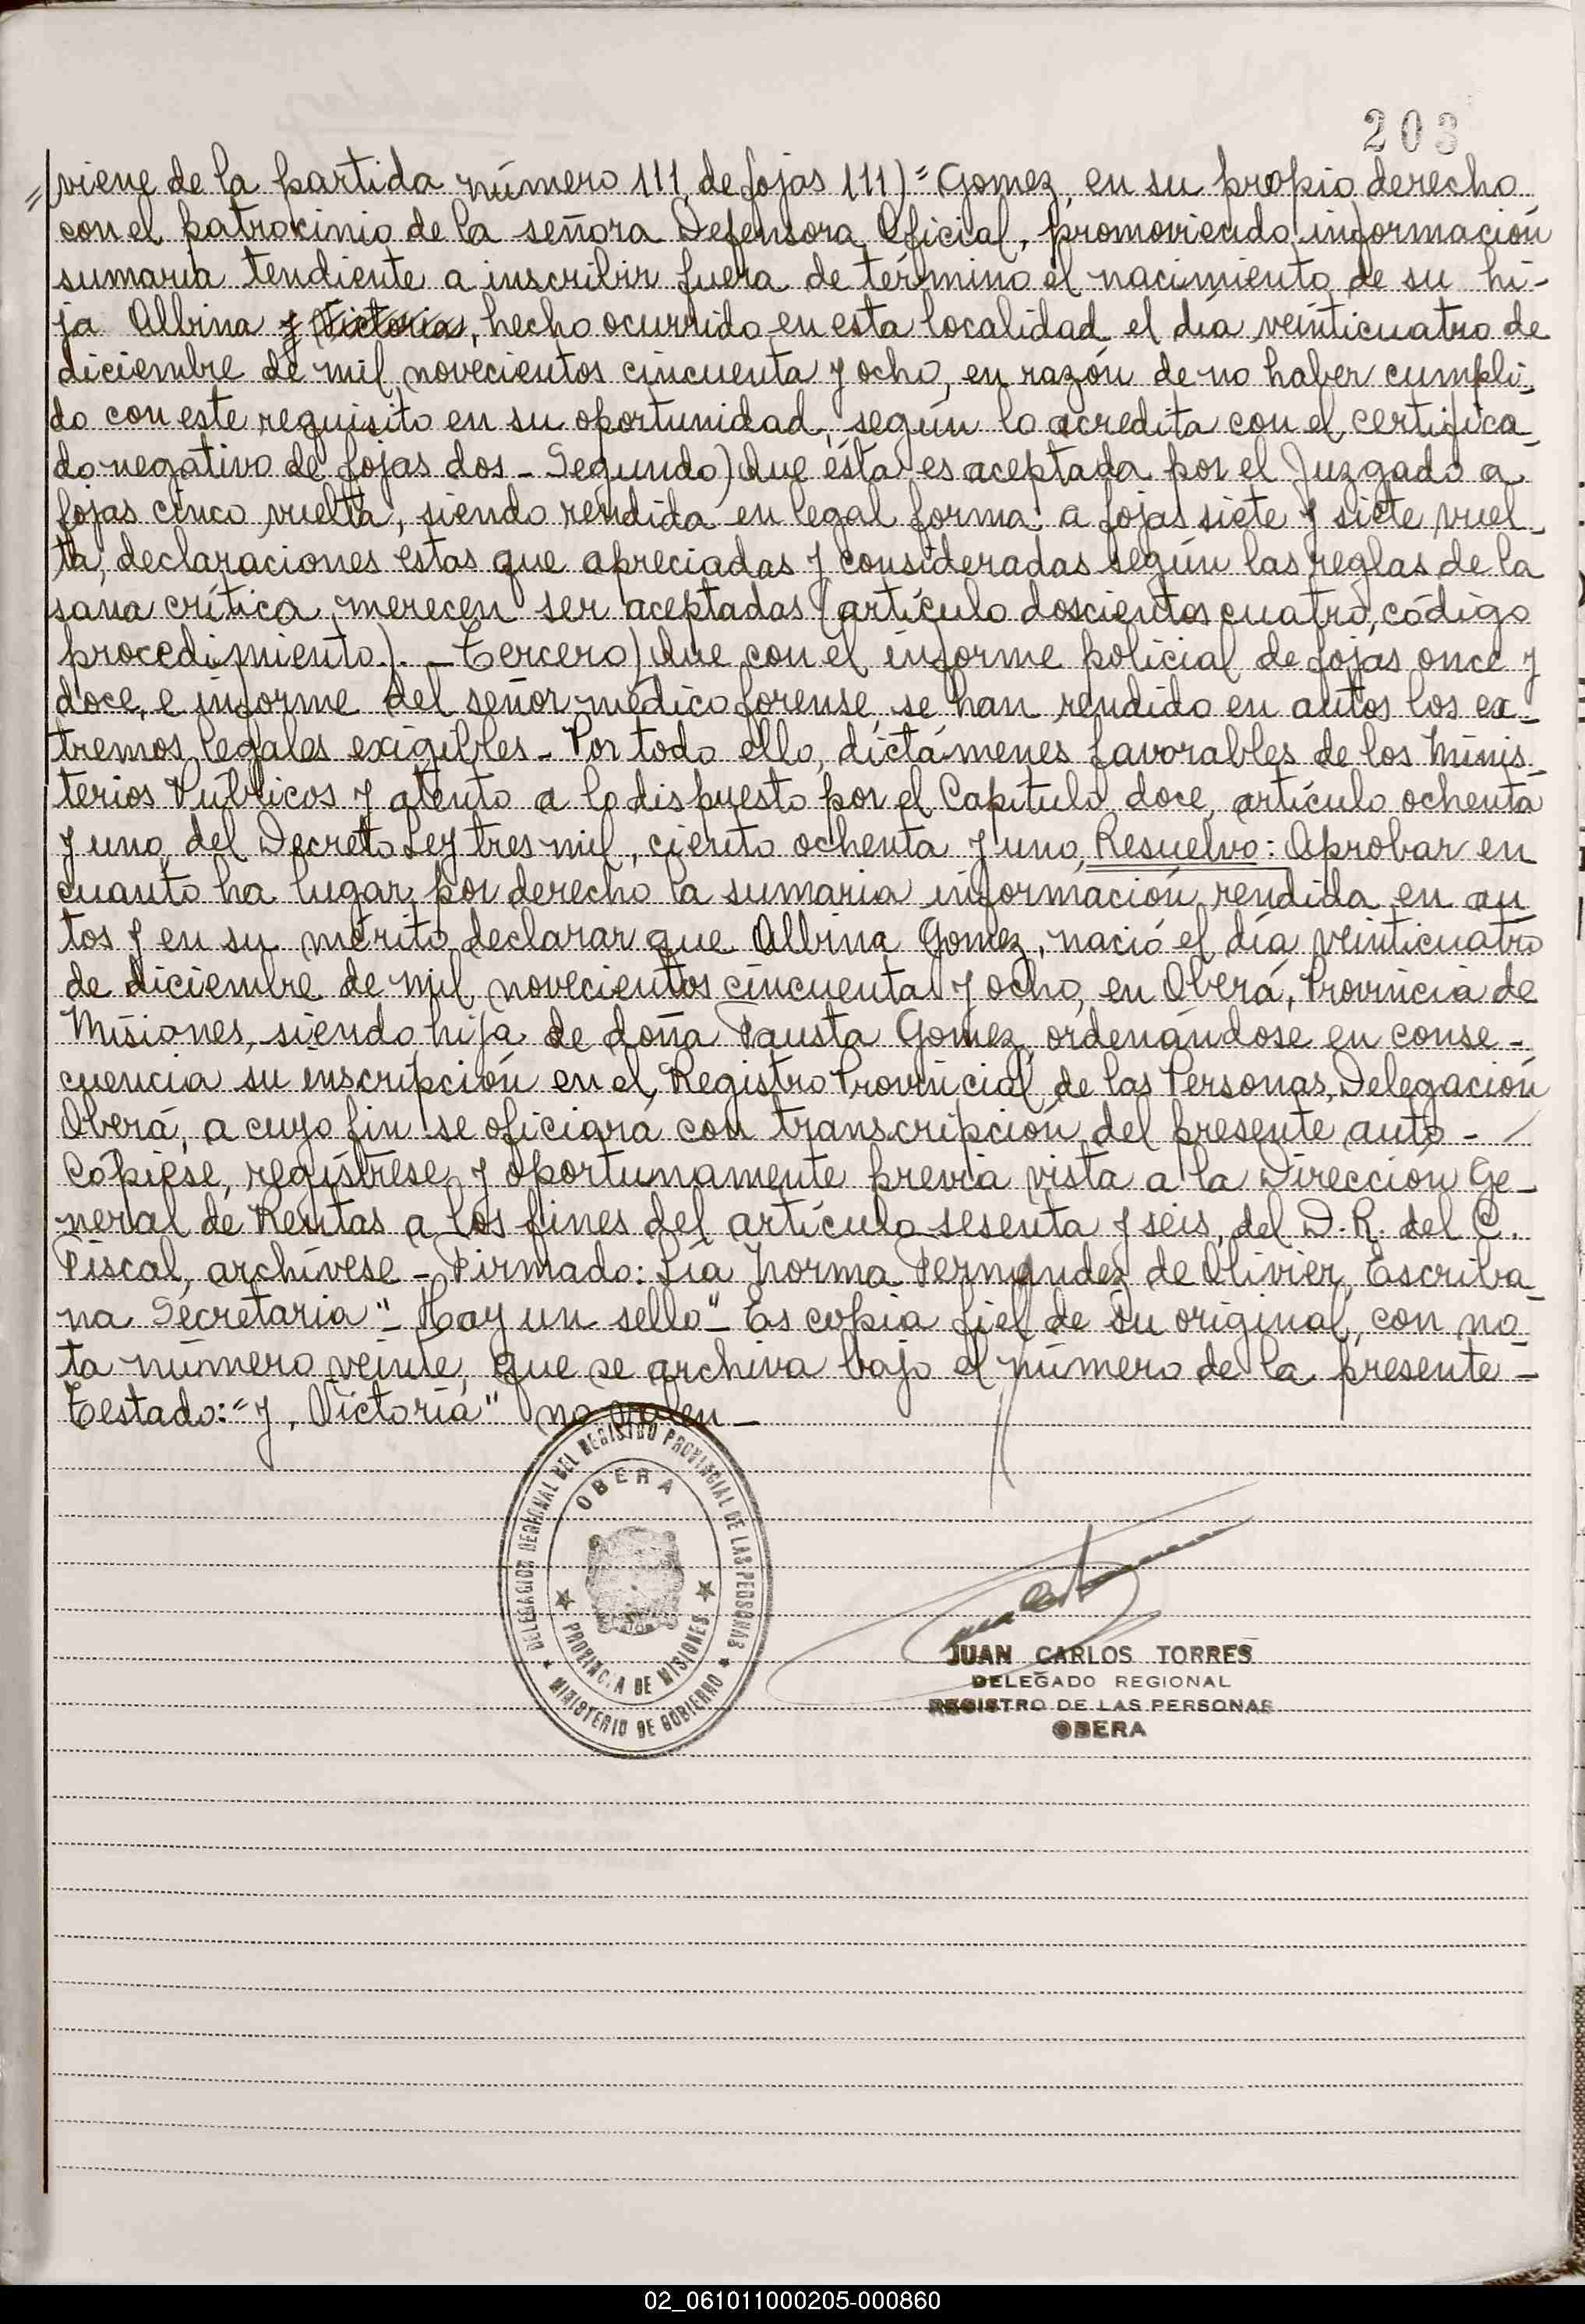 203
=(viene de la partida número 111, de fojas 111)= Gomez, en su propio derecho
con el patrocinio de la señora Defensora Oficial, promoviendo información
sumaria tendiente a inscribir fuera de término el nacimiento de su hi-
ja Albina y Victoria, hecho ocurrido en esta localidad el día veinticuatro de
diciembre de mil novecientos cincuenta y ocho, en razón de no haber cumpli-
do con este requisito en su oportunidad, según lo acredita con el certifica-
do negativo de fojas dos - Segundo) Que ésta es aceptada por el Juzgado a
fojas cinco vuelta, siendo rendida en legal forma a fojas siete y siete vuel-
ta, declaraciones estas que apreciadas y consideradas según las reglas de la
sana crítica, merecen ser aceptadas (artículo doscientos cuatro, código
procedimiento). - Tercero) Que con el informe policial de fojas once y
doce, e informe del señor médico forense, se han rendido en autos los ex-
tremos legales exigibles - Por todo ello, dictámenes favorables de los Minis-
terios Públicos y atento a lo dispuesto por el Capítulo doce, artículo ochenta
y uno, del Decreto Ley tres mil, ciento ochenta y uno, Resuelvo: Aprobar en
cuanto ha lugar por derecho la sumaria información rendida en au
tos y en su mérito declarar que Albina Gomez, nació el día veinticuatro
de diciembre de mil novecientos cincuenta y ocho, en Oberá, Provincia de
Misiones, siendo hija de doña Fausta Gomez, ordenándose en conse-
cuencia su inscripción en el Registro Provincial de las Personas, Delegación
Oberá, a cuyo fin se oficiará con transcripción del presente auto -
Cópiese, regístrese y oportunamente previa vista a la Dirección Ge-
neral de Rentas a los fines del artículo sesenta y seis, del D.R. del C.
Fiscal, archívese - Firmado: Lía Norma Fernandez de Olivier, Escriba-
na Secretaria" - Hay un sello" - Es copia fiel de su original, con no-
ta número veinte, que se archiva bajo el número de la presente -
Testado: "y, Victoria" no valen -
DELEGACION REGIONAL DEL REGISTRO PROVINCIAL DE LAS PERSONAS
OBERA
PROVINCIA DE MISIONES
MINISTERIO DE GOBIERNO
JUAN CARLOS TORRES
DELEGADO REGIONAL
REGISTRO DE LAS PERSONAS
OBERA
02_061011000205-000860